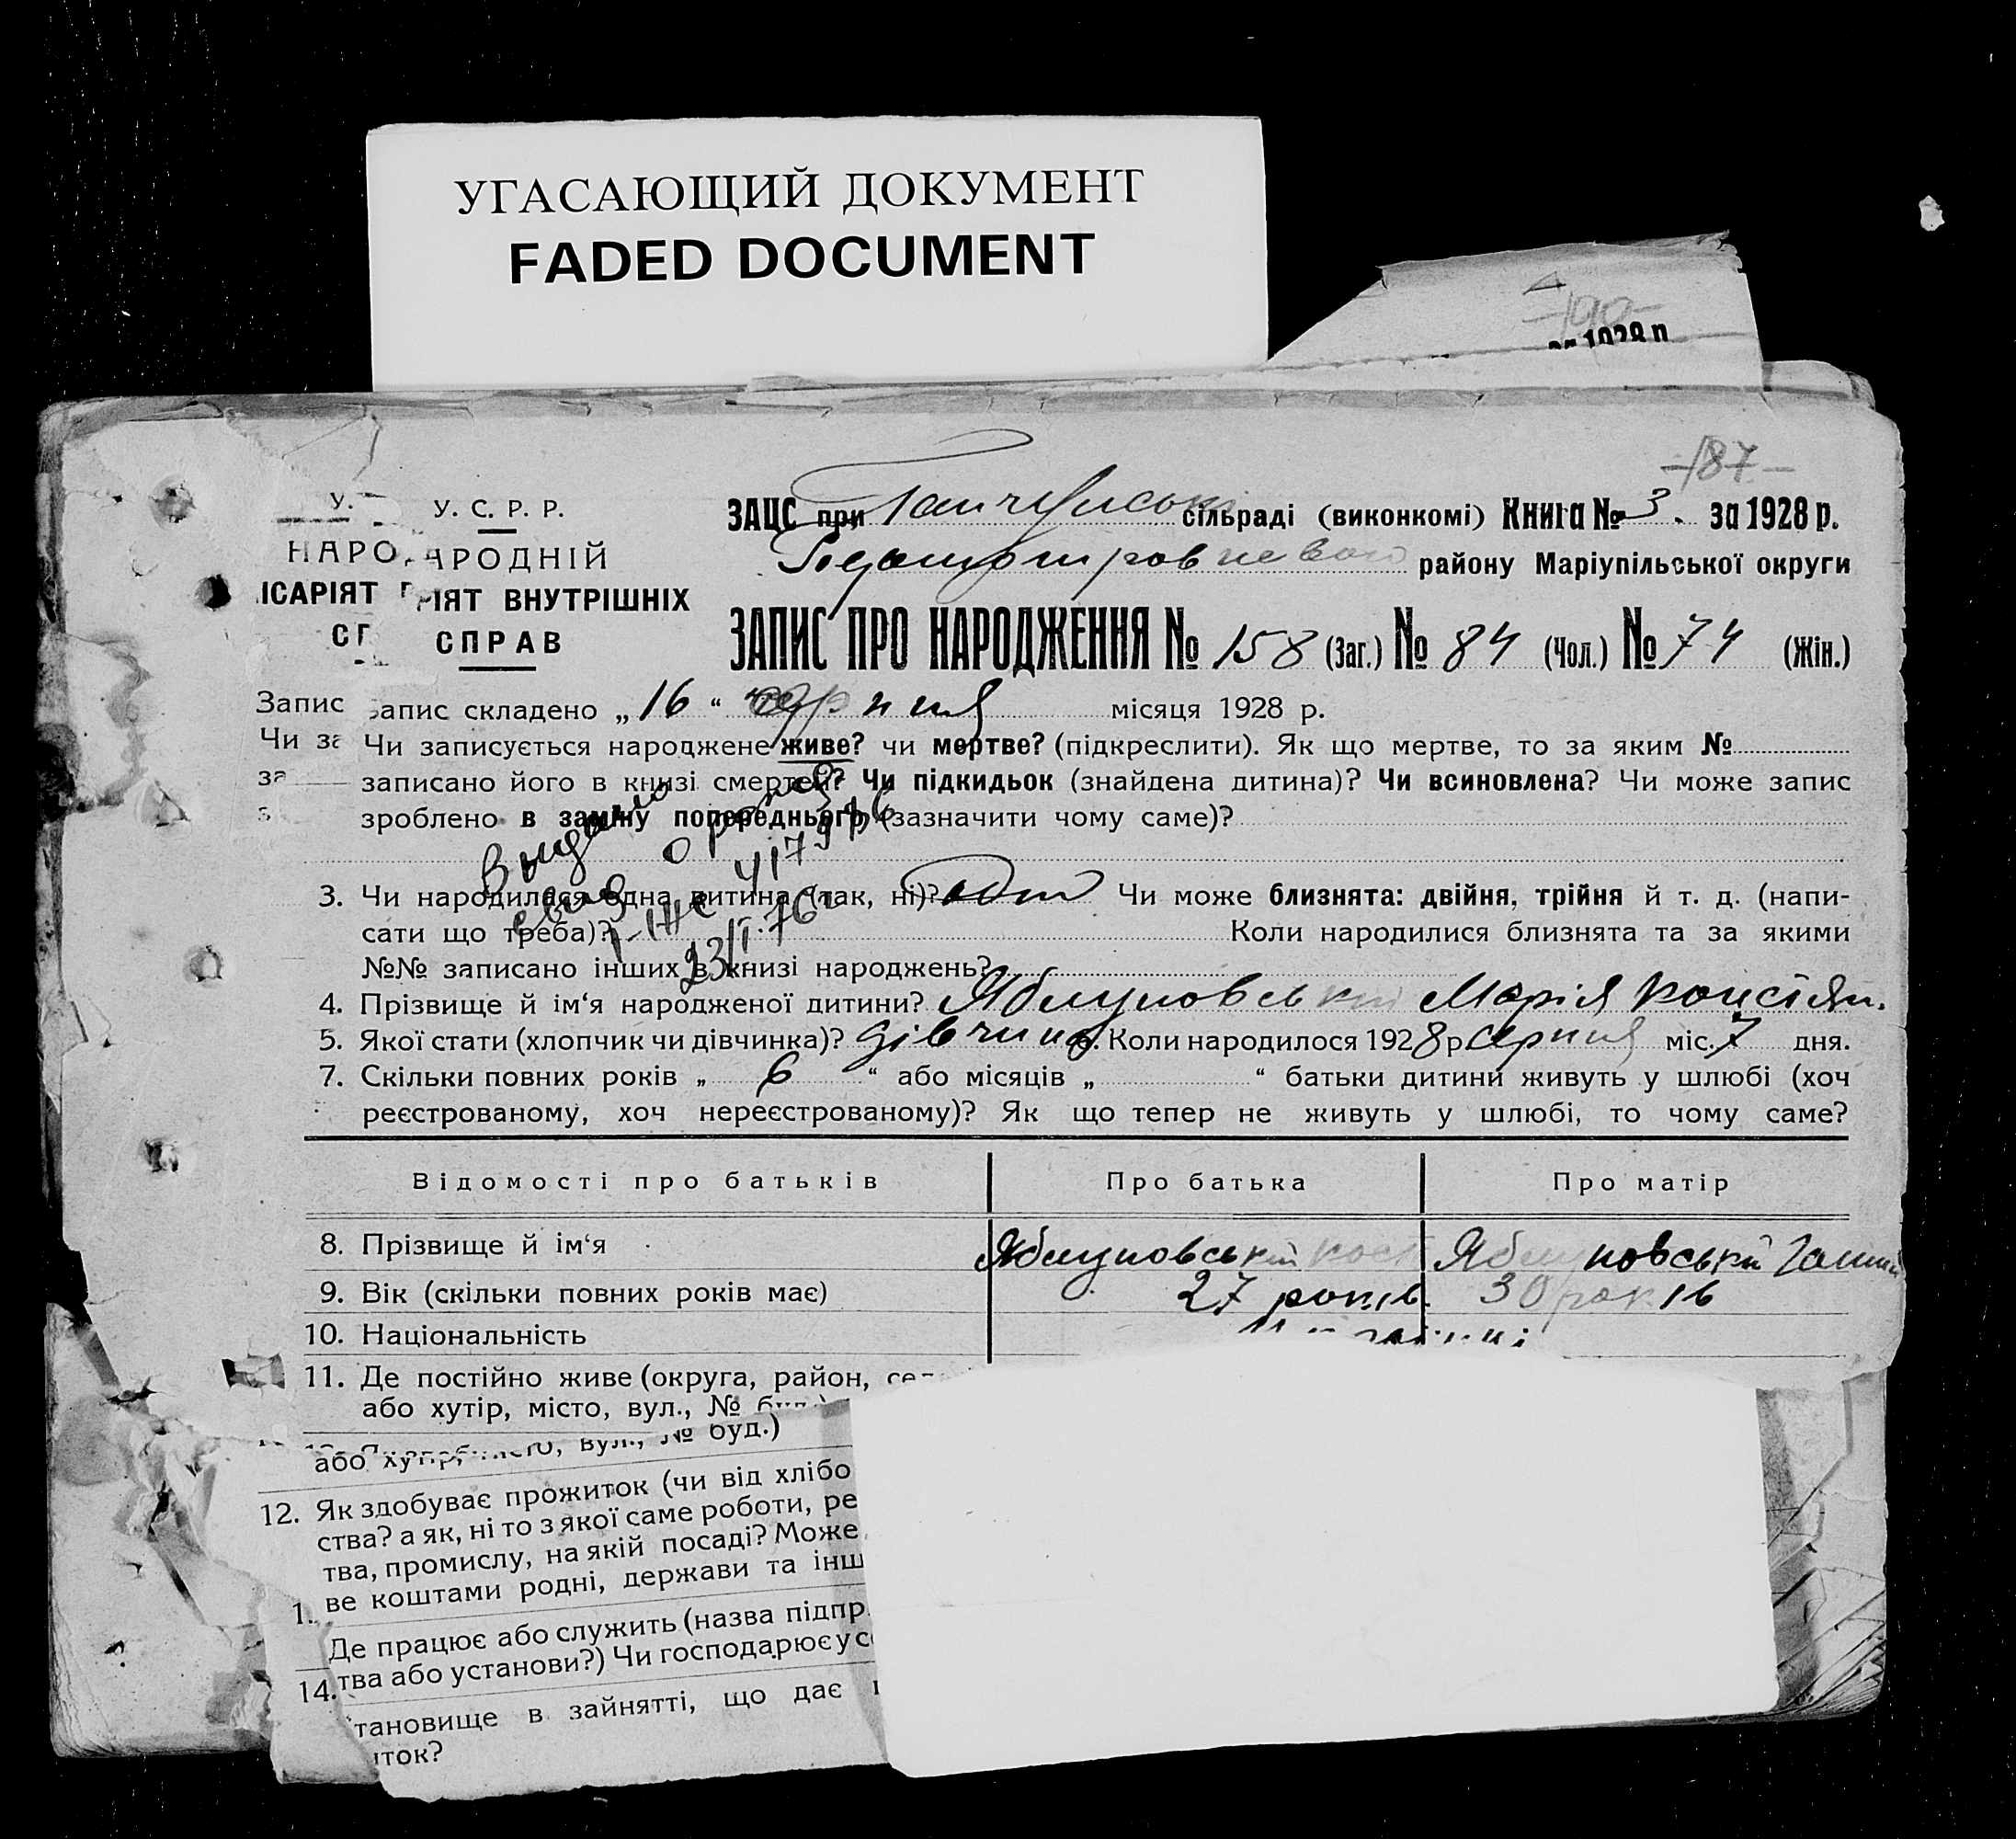 УГАСАЮЩИЙ ДОКУМЕНТ
FADED DOCUMENT
-190-
1928 р
-187-
У. У. С. Р. Р.
НАРО АРОДНІЙ
ІСАРІЯТ ІЯТ ВНУТРІШНІХ
СПРАВ
ЗАЦС при сільраді (виконкомі) Книга № 3. за 1928 р.
району Маріупільської округи
ЗАПИС ПРО НАРОДЖЕННЯ № 158 (Заг.) № 84 (Чол.) № 74 (Жін.)
Запис апис складено „ 16 “ серпня місяця 1928 р.
Чи за Чи записується народжене живе? чи мертве? (підкреслити). Як що мертве, то за яким №
за записано його в книзі смертей? Чи підкидьок (знайдена дитина)? Чи всиновлена? Чи може запис
з зроблено в заміну попереднього (зазначити чому саме)?
3. Чи народилася одна дитина (так, ні)? Чи може близнята: двійня, трійня й т. д. (напи-
сати що треба)? Коли народилися близнята та за якими
№№ записано інших в книзі народжень?
выдано
23/I-76
4. Прізвище й ім‘я народженої дитини? Яблуновській Марія Констян.
5. Якої стати (хлопчик чи дівчинка)? дівчина. Коли народилося 1928 р серпня міс. 7 дня.
7. Скільки повних років „ 6 “ або місяців „ “ батьки дитини живуть у шлюбі (хоч
реєстрованому, хоч нереєстрованому)? Як що тепер не живуть у шлюбі, то чому саме?
Відомості про батьків Про батька Про матір
8. Прізвище й ім‘я Яблуновській Кост Яблуновській
9. Вік (скільки повних років має) 27 років. 30 років
10. Національність
11. Де постійно живе (округа, район, се
або хутір, місто, вул., № буд.)
або хутір, місто, вул., № буд.)
12. Як здобуває прожиток (чи від хлібо
ства? а як, ні то з якої саме роботи, ре
тва, промислу, на якій посаді? Може
ве коштами родні, держави та інш
1.
Де працює або служить (назва підпр
14. тва або установи?) Чи господарює у с
тановище в зайнятті, що дає
иток?